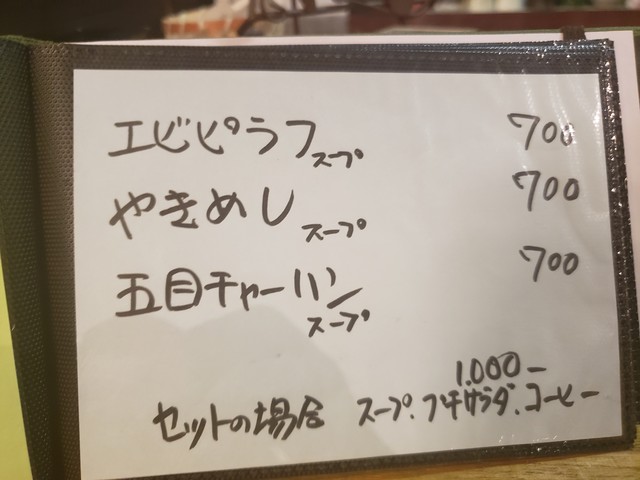 エビピラフ スープ 700
やきめし スープ 700
五目チャーハン スープ 700
1.000-
セットの場合 スープ.プチサラダ.コーヒー